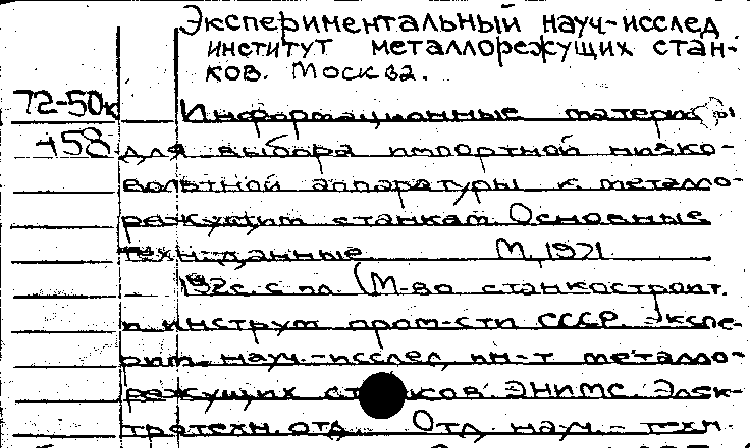 Экспериментальный науч-исслед
институт металлорежущих стан-
ков. Москва.
72-50к Информационные материалы
458 для выбора импортной низко-
вольтной аппаратуры к металло-
режущим станкам. Основные
техн. данные М, 1971
192 с. с ил. (М-во станкостроит.
и инструм пром-сти СССР. Экспе-
рим. науч.-исслед. ин-т металло-
режущих станков. ЭНИМС. Элек-
тротехн. отд. Отд. науч. - техн.